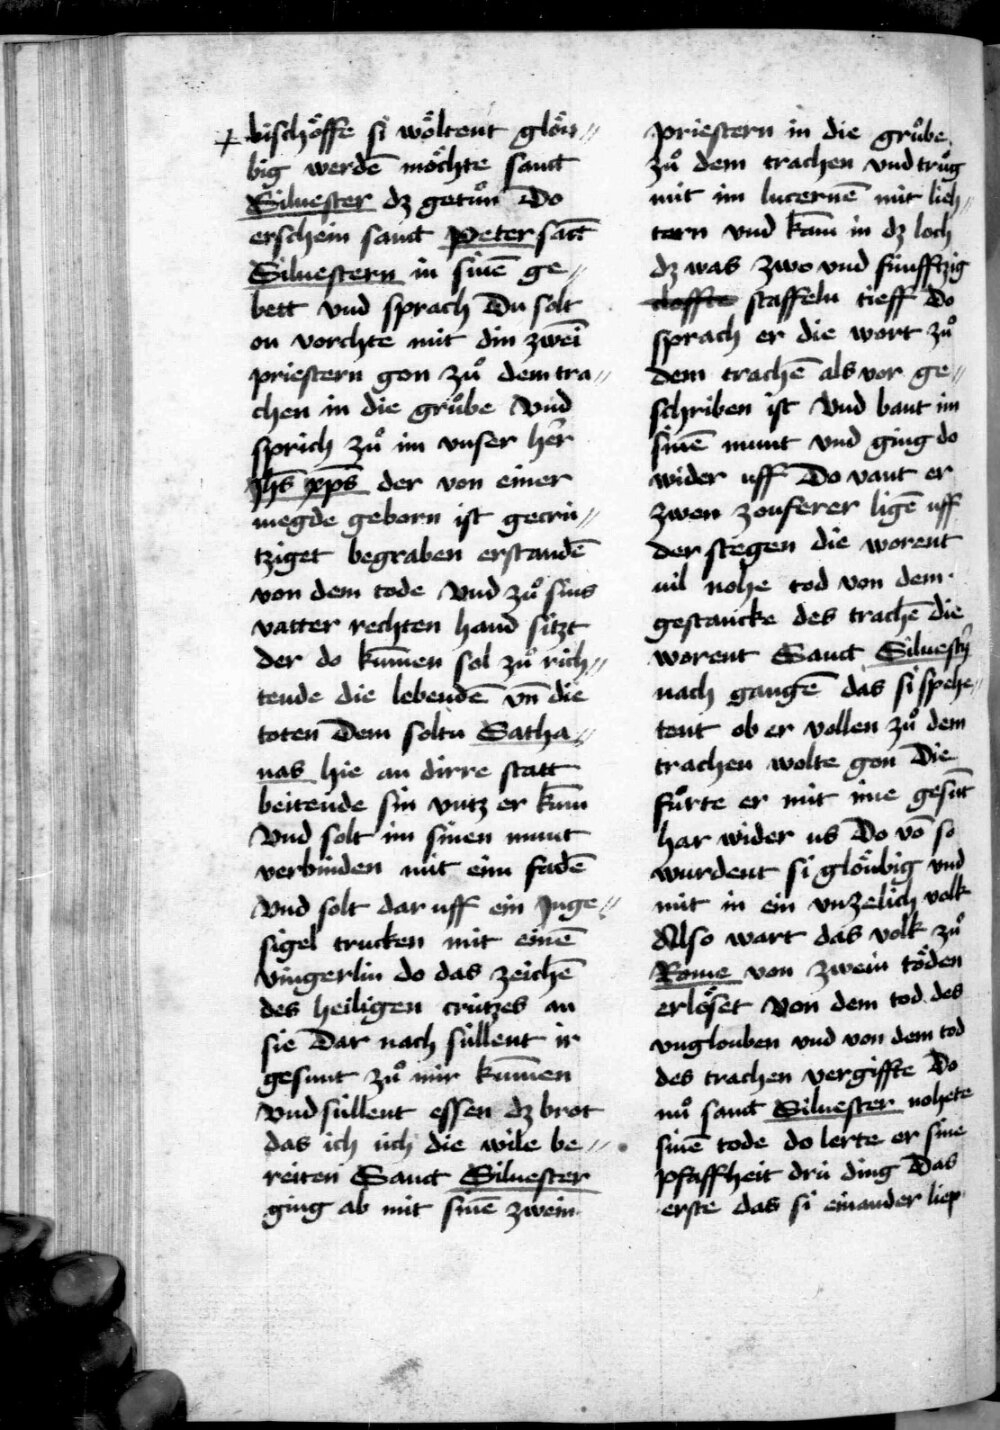 bischoͤffe si woͤltent gloͤu⸗
big werdē moͤchte sanct
Siluester dz getuͦn Do
erschein sanct Peter sāct
Siluestern in sinē ge⸗
bett vnd sprach Du solt
on vorchte mit din zwein
priestern gon zuͦ dem tra⸗
chen in die gruͦbe Vnd
sprich zuͦ im vnser her̄
Jhs̄ xp̄s der von einer
megde geborn ist gecrü⸗
tziget begraben erstandē
von dem tode Vnd zuͦ sins
vatter rechten hand sitzt
der do kum̄en sol zuͦ rich⸗
tende die lebendē vn̄ die
toten Dem soltu Satha⸗
nas hie an dirre statt
beitende sin vntz er kum̄
Vnd solt im sinen munt
verbinden mit eim fadē
Vnd solt dar uff ein Inge⸗
sigel trucken mit einē
vingerlin do das zeichē
des heiligen crützes an
sie Dar nach süllent ir
gesunt zuͦ mir kum̄en
Vnd süllent essen dz brot
das ich üch die wile be⸗
reiten Sanct Siluester
ging ab mit sinē zwein
priestern in die gruͦbe
zuͦ dem trachen vnd truͦg
mit im lucernē mit lieh⸗
tern vnd kam̄ in dz loch
dz was zwo vnd fünfftzig
staffeln tieff Do
sprach er die wort zuͦ
dem trachē als vor ge⸗
schriben ist Vnd bant im
sinē munt vnd ging do
wider uff Do vant er
zwen zouferer ligē uff
der stegen die worent
vil nohe tod von dem
gestancke des trachē die
worent Sanct Siluestr̄
nach gangē das si spehe⸗
tent ob er vollen zuͦ dem
trachen wolte gon Die
fuͦrte er mit ime gesūt
har wider us Do vō so
wurdent si gloͤubig vnd
mit in ein vnzelich volk
Also wart das volk zuͦ
Rome von zwein toͤden
erloͤset Von dem tod des
vnglouben vnd von dem tod
des trachen vergiffte Do
nuͦ sanct Siluester nohete
sinē tode do lerte er sine
pfaffheit drü ding Das
erste das si einander liep